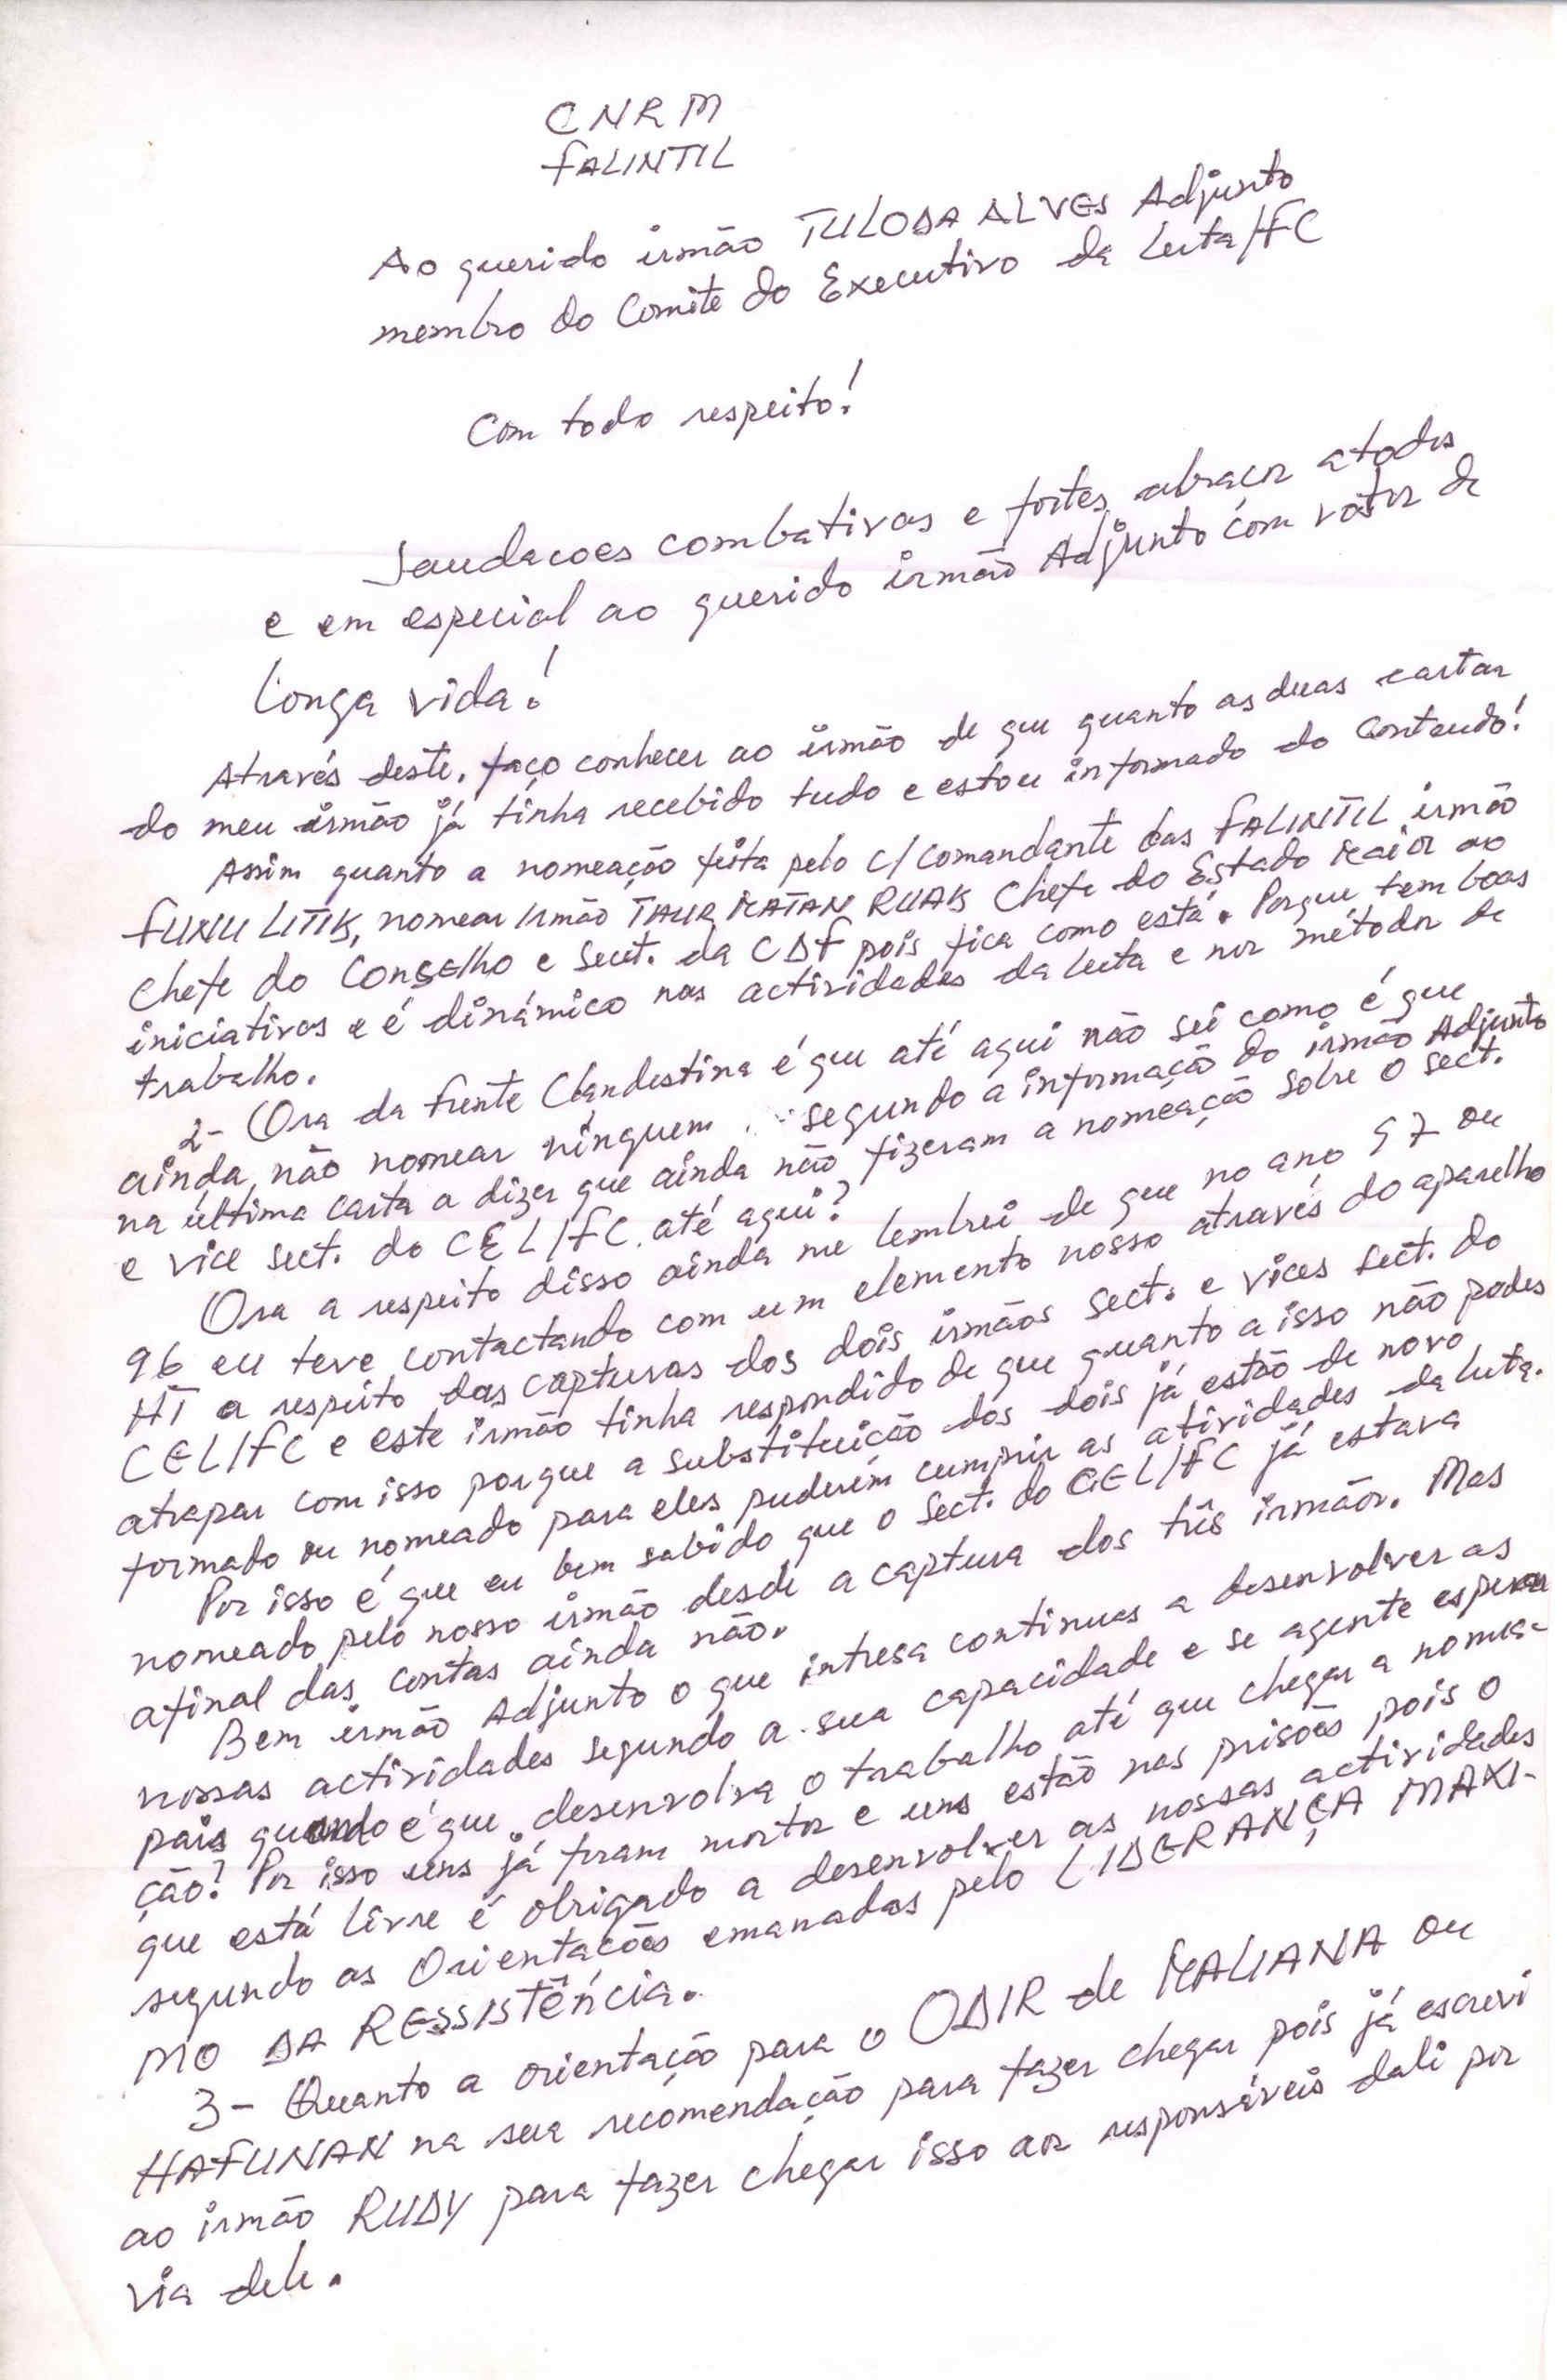 CNRM
FALINTIL
Ao querido irmão TULODA ALVES Adjunto
membro do Comite do Executivo da Luta/FC
Com todo respeito!
Saudacoes combativas e fortes abraços atodos
e em especial ao querido irmão Adjunto com votos de
Longa vida!
Através deste, faço conhecer ao irmão de que quanto as duas cartas
do meu irmão já tinha recebido tudo e estou informado do Conteudo!
Assim quanto a nomeação feita pelo c/comandante das FALINTIL irmão
FUNU LITIK, nomear irmão TAUR MATAN RUAK Chefe do Estado Maior ao
chefe do Conselho e Secet. da CDF pois fica como está. Porque tem boas
iniciativas e é dinámico nas actividades da luta e nos métodos de
trabalho.
2- Ora da frente Clandestina é que até aqui não sei como é que
ainda não nomear ninguem segundo a informação do irmão Adjunto
na última carta a dizer que ainda não fizeram a nomeação sobre o sect.
e vice sect. do CEL/FC até aqui?
Ora a respeito disso ainda me lembrei de que no ano 97 ou
96 eu teve contactando com um elemento nosso através do aparelho
HT a respeito das capturas dos dois irmãos sect. e vices sect. do
CEL/FC e este irmão tinha respondido de que quanto a isso não podes
atrapar com isso porque a substituição dos dois já estão de novo
formado ou nomeado para eles puderem cumprir as atividades da luta.
Por isso é que eu bem sabido que o sect. do CEL/FC já estava
nomeado pelo nosso irmão desde a captura dos três irmãos. Mas
afinal das contas ainda não.
Bem irmão Adjunto o que intresa continuas a desenvolver as
nossas actividades segundo a sua capacidade e se agente esperar
pais quando é que desenvolva o trabalho até que chegar a nomea-
ção? Por isso uns já foram mortos e uns estão nas prisões pois o
que está livre é obrigado a desenvolver as nossas actividades
segundo as Orientações emanadas pelo LIDERANÇA MAXI-
MO DA RESSISTÊNCIA.
3- Quanto a orientação para o ODIR de MALIANA ou
HAFUNAN na sua recomendação para fazer chegar pois já escrevi
ao irmão RUDY para fazer chegar isso aos responsáveis dali por
via dele.